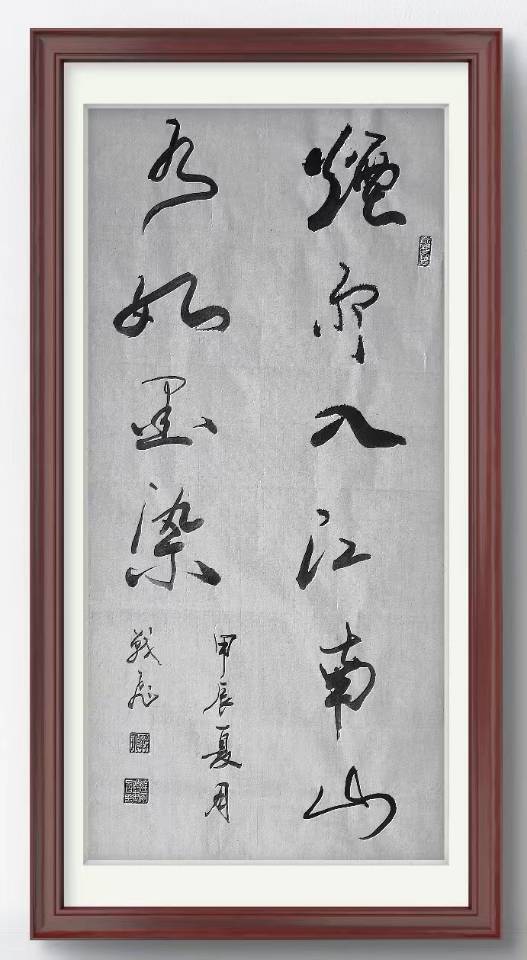 煙雨入江南山
水如墨染
甲辰夏月
戰